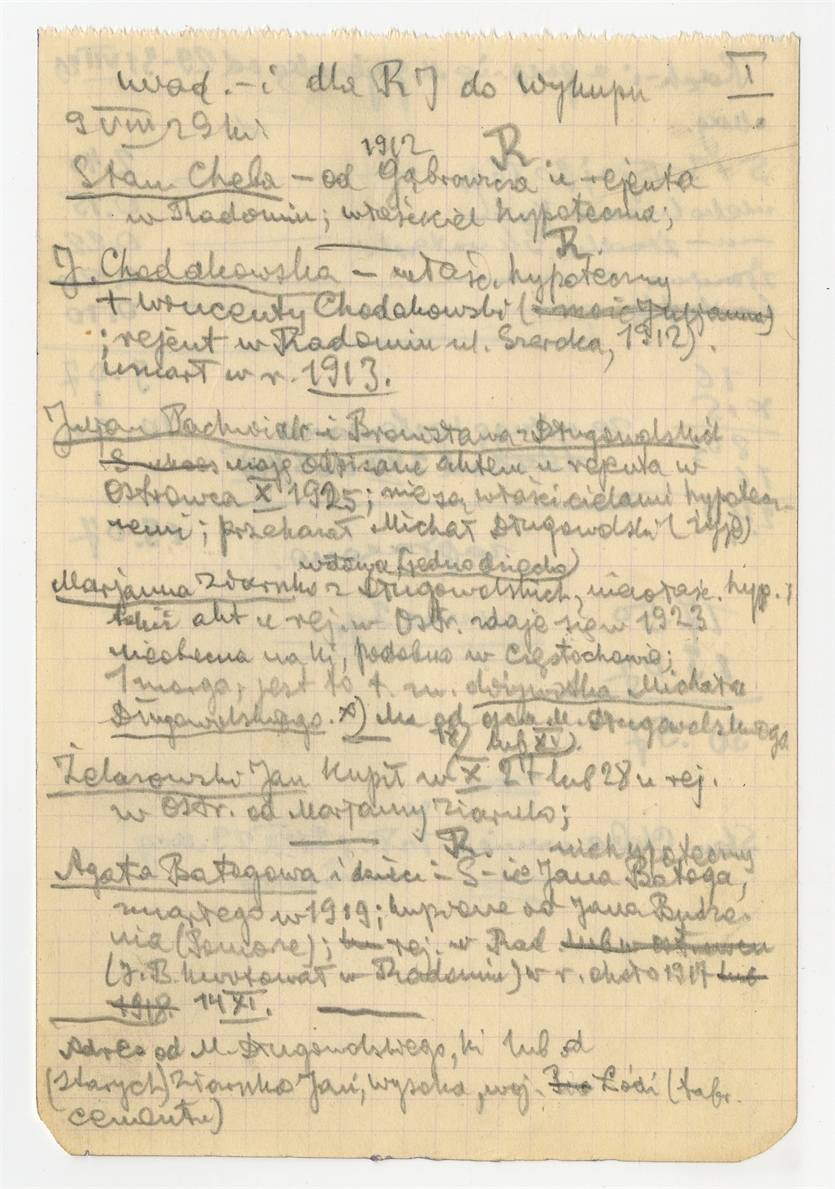 wiad.-i dla RJ do wykupu I
9 VIII 29 ki
1912 R
Stan. Cheba – od Gąbrowicza u rejenta
w Radomiu; właściciel hypoteczna;
R.
J. Chodakowska – właśc. hypoteczny
+ Wincenty Chodakowski (
; rejent w Radomiu ul. Szeroka, 1912).
umarł w r. 1913.
Juljan Pachniak i Bronisława z Długowolskich
mają odpisane aktem u rejenta w
Ostrowcu X 1925; nie są właścicielami hypotecz-
nemi; przekazał Michał Długowolski (żyje)
wdowa (jedno dziecko)
Marjanna Ziarnko z Długowolskich, niewłaśc. hyp.;
akt u rej. w Ostr. zdaje się w 1923
nieobecna na ki, podobno w Częstochowie;
1 morga, jest to t. zw. dożywotka Michała
Długowolskiego. x) Ma od ojca M. Długowolskiego
lub XV).
Żelazowski Jan kupił w X 27 lub 28 u rej.
w Ostr. od Marjanny Ziarnko;
R. niehypoteczny
Agata Batogowa i dzieci – S-ie Jana Batoga,
zmarłego w 1919; kupione od Jana Budze-
nia (Seniora); rej. w Rad. lub w
(J. B. kwitował w Radomiu) w r. około 1917 lub
1918. 14 XI.
Adres od M. Długowolskiego, ki lub od
(starych) Ziarnko Jań, Wysoka, woj. Łódź (fabr.
cementu)